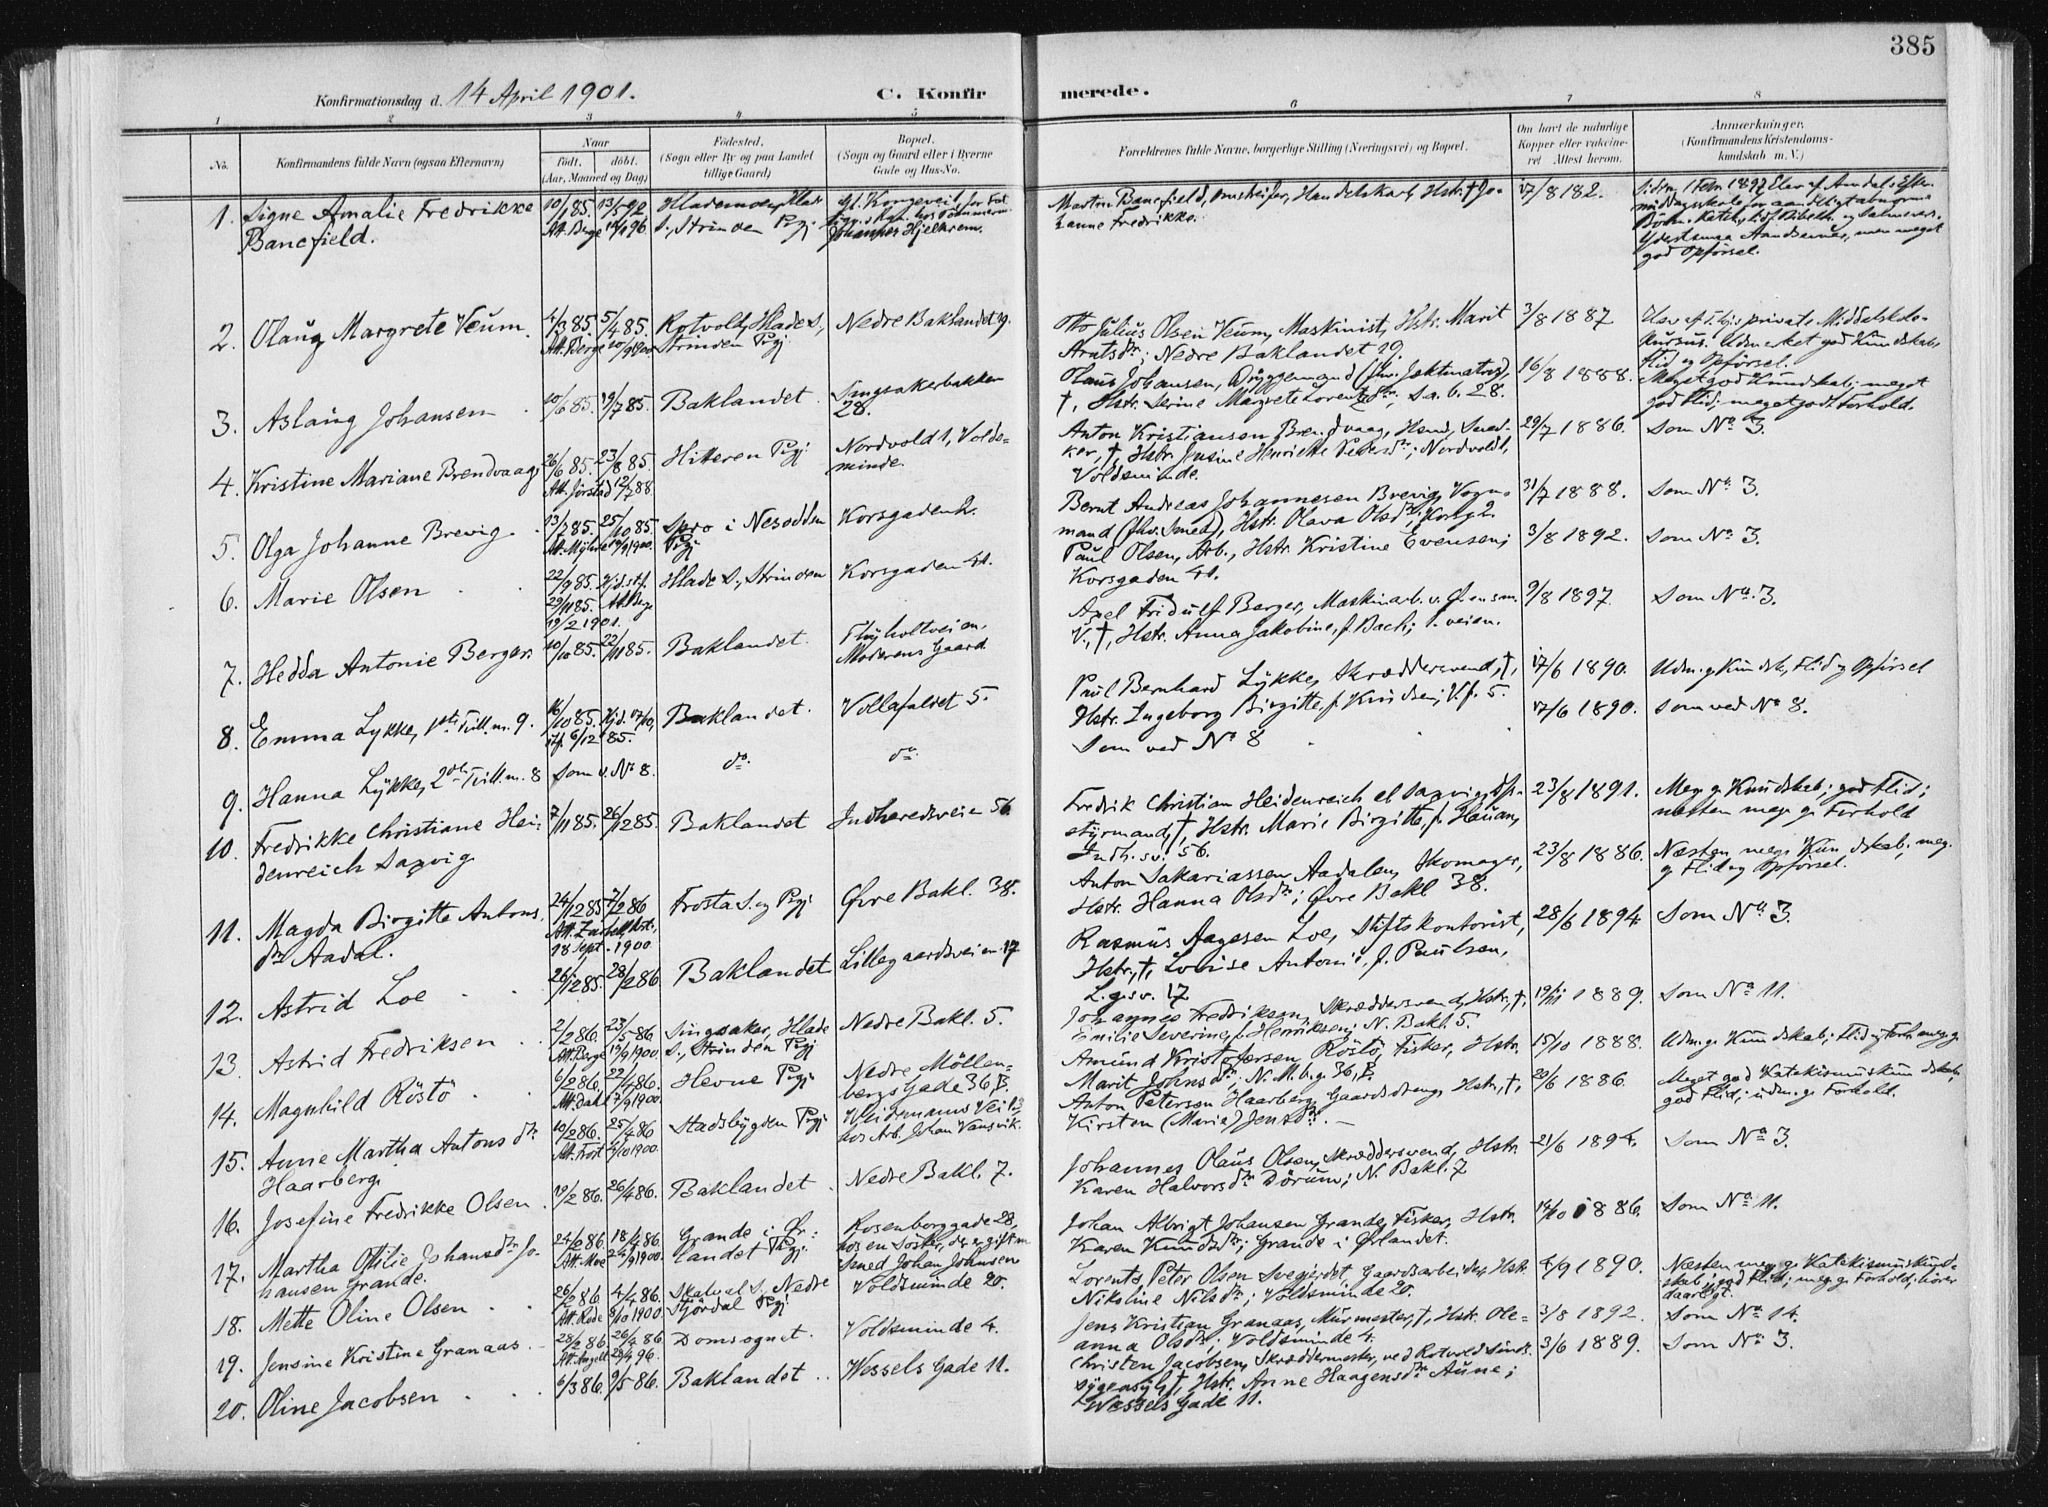 385
Konfirmationsdag d. 14 April 1901. C. Konfirmerede.
1 2 3 4 5 6 7 8
No. Konfirmandens fulde Navn (ogsaa Efternavn) Naar født, døbt. (Aar, Maaned og Dag) Fødested. (Sogn eller By og paa Landet tillige Gaard) Bopæl. (Sogn og Gaard eller i Byerne Gade og Hus-No. Forældrenes fulde Navne, borgerlige Stilling (Næringsvei) og Bopæl. Om havt de naturlige Kopper eller vaccineret Attest herom. Anmærkninger. (Konfirmandens Kristendomskundskab m. V.)
1. Signe Amalie Fredrikke 10/1 85. Hlademoen, Hlade 17/8 182.
Bancfield. Att. Berge S., Strinden Pgj Johannes Hjelkrem. Fredrikke. god Opførsel.
2. Olaug Margrete Veum. 4/3 85. 5/4 85. Rotvold, Hlade S., Nedre Baklandet 19. Otto Julius Olsen Veum, Maskinist, Hstr. Marit 3/8 1887
Att. Berge 20/9 1900 Strinden Pgj Aratsdtr; Nedre Baklandet 19. Flid og Opførsel.
3. Aslaug Johansen 10/6 85. 19/7 85. Baklandet Singsakerbakken 28. Olaus Johansen, Bryggemand 16/8 1888. Meget god Kundskab; meget
†, Hstr. Serine Margrete Lorentzdtr, S.a.b. 28. god Flid; meget godt Forhold.
4. Kristine Mariane Brendvaag 26/6 85. 23/8 85. Hitteren Pgj Nordvold 1, Voldsminde. Anton Kristiansen Brendvaag, 29/7 1886. Som No 3.
Att. Jørstad 12/7 88. †, Hstr. Jensine Henriette Pedersdtr; Nordvold 1, Voldsminde.
5. Olga Johanne Brevig. 13/7 85. 25/10 85. Spro i Nesodden Pgj Korsgaden 2. Bernt Andreas Johannesen Brevig, Vognmand 31/7 1888. Som No 3.
(fhv. Smed), Hstr. Olava Olsdtr; Korsg 2.
6. Marie Olsen 22/9 85. Hjd. stf. 29/11 85. Att. Berge 19/2 1901. Hlade S., Strinden Korsgaden 41. Paul Olsen, Arb., Hstr. Kristine Evensen; 3/8 1892. Som No 3.
Korsgaden 41.
7. Hedda Antonie Berger. 10/10 85. 22/11 85. Baklandet. Thyholtveien, Moderens Gaard Axel Fridulf Berger, Maskinarb. 9/8 1897. Som No 3.
V., †, Hstr. Anna Jakobine, f. Bach; veien.
8. Emma Lykke, 1ste Tvill. m. 9. 16/10 85. Hjd. 17/10, Baklandet. Vollafaldet 5. Paul Bernhard Lykke, Skræddersvend, †, 17/6 1890. Udm. g. Kundsk., Flid og Opførsel
6/12 85. Hstr. Ingeborg Birgitte, f. Knudsen; V.f. 5.
9. Hanna Lykke, 2den Tvill. m. 8 Som v. No 8. do do Som ved No 8 17/6 1890. Som ved No 8.
10. Fredrikke Christiane Heidenreich Saxvig 7/11 85. 26/12 85. Baklandet Indheredsveien 56 Fredrik Christian Heidenreich Saxvig, styrmand, †, Hstr. Marie Birgitte, f. Hauan, 23/8 1891. Meg. g. Kundskab; god Flid; næsten meg. g. Forhold
Indh.sv. 56.
11. Magda Birgitte Antonsdtr Aadal. 24/12 85 7/2 86 Frosta S. og Pgj Øvre Bakl. 38. Anton Sakariassen Aadalen, Skomager, 23/8 1886. Næsten meg. g. Kundskab; meg. g. Flid og Opførsel.
18 Sept. 1900 Hstr. Hanna Olsdtr; Øvre Bakl 38.
12. Astrid Loe 26/12 85. 28/2 86 Baklandet Lillegaardsveien 17 Rasmus Aagesen Loe, Stiftskontorist, 28/6 1894. Som No 3.
Hstr., †, Lovise Antonie, f. Paulsen, L.g.sv. 17
13. Astrid Fredriksen 2/2 86. 23/5 86 Singsaker, Hlade S., Strinden Pgj Nedre Bakl. 5. Johannes Fredriksen, Skræddersvend, Hstr., †, 19/11 1889. Som No 11.
Att. Berge 19/9 1900. Emilie Severine, f. Henriksen; N. Bakl. 5.
14. Magnhild Röstö 6/2 86. 22/4 86. Hevne Pgj Nedre Möllenbergs Gade 36, B. Amund Kristofersen Röstö, Fisker, Hstr. 15/10 1888. Udm. g. Kundskab; Flid og Forh. meg. g.
Att. Dahl 7/9 1900. Marit Johnsdtr; N. M. b. g 36, B.
15. Anne Martha Antonsdtr Haarberg. 10/2 86. 25/4 86 Stadsbygden Pgj Weidemanns Vei 13 hos Arb. Johan Vansvik. Anton Petersen Haarberg, Gaardsdreng, Hstr., †, 20/6 1886. Meget god Katekismuskundskab, god Flid; udm. g. Forhold.
Kirsten (Marie) Jensdtr. —
16. Josefine Fredrikke Olsen. 19/2 86. 26/4 86. Baklandet. Nedre Bakl. 7. Johannes Olaus Olsen, Skræddersvend, Hstr. 21/6 1894. Som No 3.
Karen Halvorsdtr Dörum; N. Bakl. 7
17. Martha Otilie Johansdtr Johansen Grande. 24/2 86. 18/4 86. Grande i Ørlandet Pgj. Rosenborggade 28, hos en Søster, der er gift m Smed Johan Johnsen Johan Albrigt Johansen Grande, Fisker, Hstr. 14/10 1886. Som No 11.
Att. Moe 24/9 1900. Karen Knudsdtr; Grande i Ørlandet.
18. Mette Oline Olsen 26/2 86 4/4 86. Skatval S., Nedre Stjördal Pgj Voldsminde 20. Lorents Peter Olsen Svegjerdet, Gaardsarbeider, Hstr. 4/9 1890. Næsten meg. g. Katekismuskundskab; god Flid; meg. g. Forhold; hører daarligt.
Att. Rode 8/10 1900. Nikoline Nilsdtr; Voldsminde 20.
19. Jensine Kristine Granaas. 28/2 86. 26/4 86 Domsognet. Voldsminde 4. Jens Kristian Granaas, Murmester, †, Hstr. Oleanna Olsdtr; Voldsminde 4. 3/8 1892. Som No 14.
20. Oline Jacobsen 6/3 86. 9/5 86. Baklandet Wessels Gade 11. Christen Jacobsen, Skræddermester, ved Rotvold Sindssygeasyl, †, Hstr. Anne Haagensdtr Aune; 3/6 1889. Som No 3.
Wessels Gade 11.